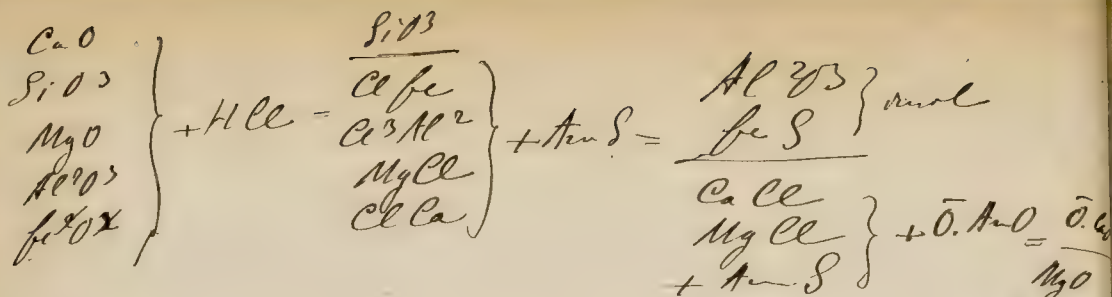 CaO
SiO³
MgO
Al²O³
feˣOˣ
+ HCl =
SiO³
Cl fe
Cl³Al²
MgCl
ClCa
+ Am S =
Al²O³
fe S
CaCl
MgCl
+ Am. S
+ Ō. AmO = Ō. CaO
MgO